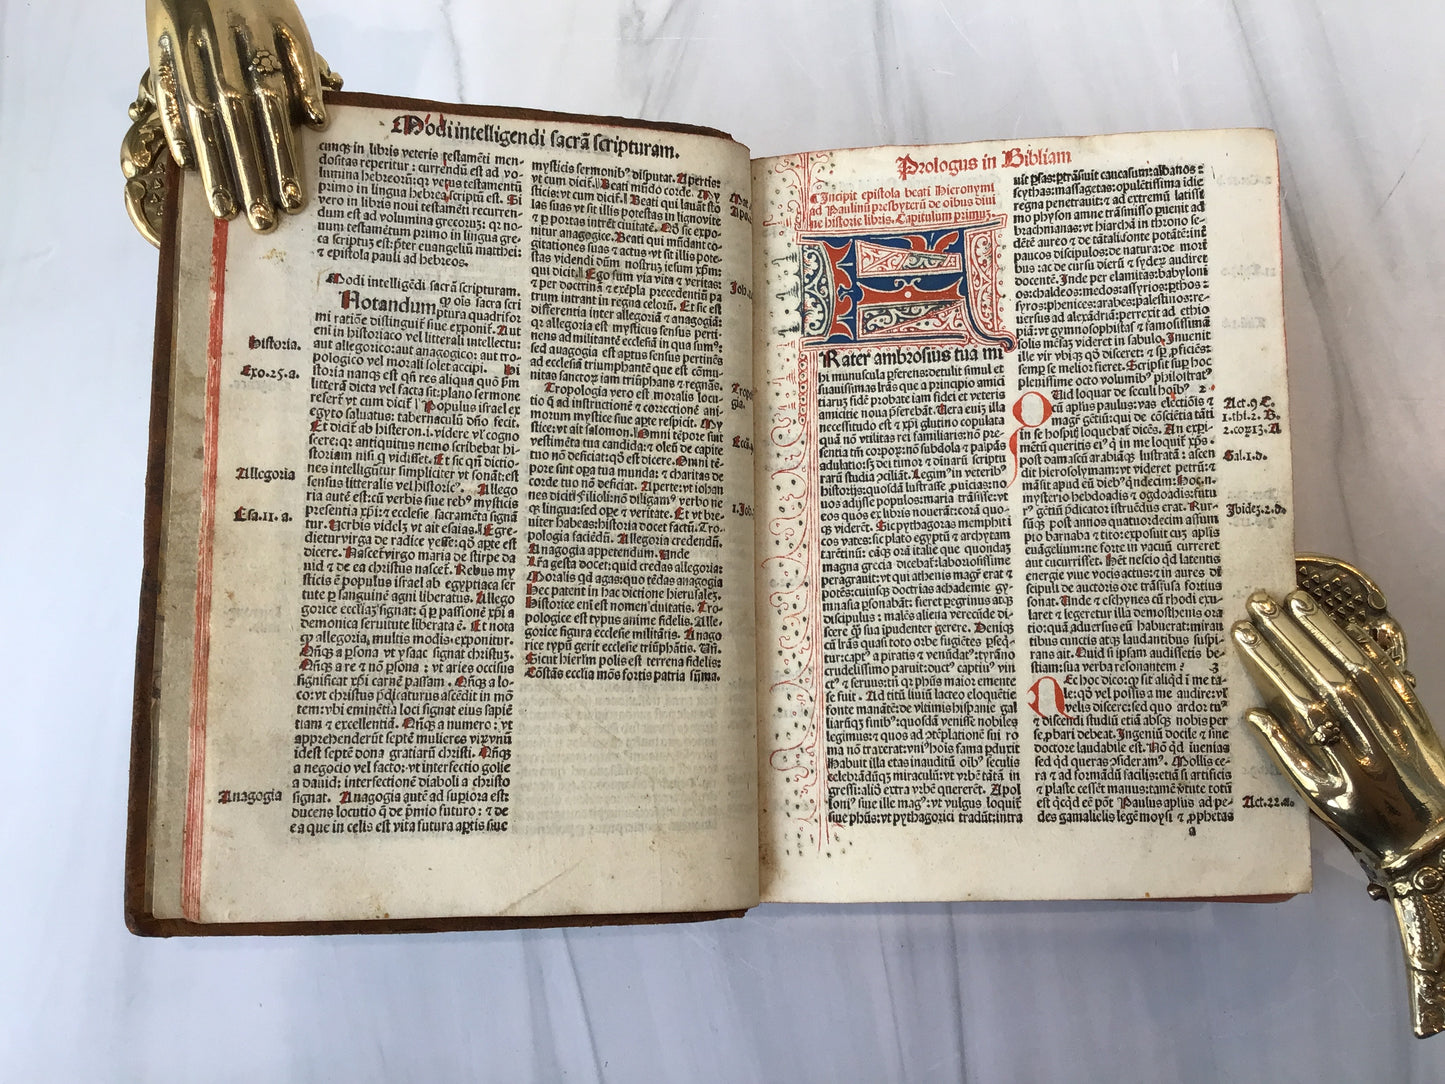 Modi intelligendi sacrã scripturam.
cunq̃ in libris veteris testamẽti men-
dositas reperitur: currendũ est ad vo-
lumina hebreorũ: qꝛ vetus testamentũ
primo in lingua hebrea scriptũ est. Si
vero in libris noui testamẽti recurren-
dum est ad volumina grecorum: qꝛ no-
uum testamentum primo in lingua gre-
ca scriptuꝫ est: p̃ter euangeliũ matthei:
⁊ epistola pauli ad hebreos.
Modi intelligẽdi sacrã scripturam.
Notandum ꝙ oĩs sacra scri
ptura quadrifor
mi ratiõe distinguit̃ siue exponit̃. Aut
eni in historiaco vel litterali intellectu:
aut allegorico: aut anagogico: aut tro-
pologico vel morali solet accipi. Hi
storia nanqꝫ est qñ res aliqua quõ ẜm
litterã dicta vel facta sit: plano sermone
refert̃ vt cum dicit̃ Populus israel ex
egypto saluatus: tabernaculũ dño fecit.
Et dicit̃ ab histeron.i. videre vl̃ cogno
scere: qꝛ antiquitus nemo scribebat hi-
storiam nisi q̃ vidisset. Et sic qñ dictio-
nes intelligũtur simpliciter vt sonãt: est
sensus litteralis vel historicꝰ. Allego
ria autẽ est: cũ verbis siue rebꝰ mysticis
presentia xp̃i: ⁊ ecclesie sacramẽta signã
tur. Verbis videlꝫ vt ait esaias. Egre-
dietur virga de radice yesse: qđ aꝑte est
dicere. Nascet̃ virgo maria de stirpe da
uid ⁊ de ea christus nascet̃. Rebus my
sticis ẽ populus israel ab egyptiaca ser
tute ꝑ sanguinẽ agni liberatus. Allego
gorice eccliaꝫ signat: q̃ ꝑ passionẽ xp̃i a
demonica seruitute liberata ẽ. Et nota
ꝙ allegoria, multis modis exponitur.
Qñq̃ a ꝑsona vt ysaac signat christuꝫ.
Qñq̃ a re ⁊ nõ ꝑsona: vt aries occisus
significat xp̃i carnẽ passam. Qñq̃ a lo-
co: vt christus p̃dicaturus ascẽdit in mõ
tem: vbi eminẽtia loci signat eius sapiẽ
tiam ⁊ excellentiã. Qñq̃ a numero: vt
apprehenderũt septẽ mulieres virũ vnũ
idest septẽ dona gratiarũ christi. Qñq̃
a negocio vel facto: vt interfectio golie
a dauid: intersectionẽ diaboli a christo
signat. Anagogia autẽ ad suꝑiora est:
ducens locutio q̃ de p̃mio futuro: ⁊ de
ea que in celis est vita futura aꝑtis siue
historia.
Exo.25.a.
Allegoria
Esa.11.a.
Anagogia
mysticis sermonibꝰ disputat. Apertis:
vt cum dicit̃ Beati mũdo corde. My
sticis: vt cum dicit̃ Beati qui lauãt sto
las suas vt sit illis potestas in lignovite
⁊ ꝑ portas intrẽt ciuitatẽ. Qđ sic expo
nitur anagogice. Beati qui mũdant co-
gitationes suas ⁊ actus vt sit illis pote-
stas videndi dũm nostruꝫ iesum xp̃m:
qui dicit̃ Ego sum via vita ⁊ veritas:
⁊ per doctrinã ⁊ exẽpla precedentiũ pa
trum intrant in regna celorũ. Et sic est
differentia inter allegoriã ⁊ anagogiã:
qꝛ allegoria est mysticus sensus perti-
nens ad militantẽ ecclesiã in qua sumꝰ:
sed auagogia est aptus sensus pertinẽs
ad ecclesiã triumphantẽ que est commu
nitas sanctoꝝ iam triũphans ⁊ regnãs.
Tropologia vero est moralis locu-
tio q̃ ad instructionẽ ⁊ correctionẽ ani-
morum mystice siue aꝑte respicit. My
stice: vt ait salomon. Omni tẽpore sint
vestimẽta tua candida: ⁊ oleũ de capite
tuo nõ deficiat: qđ est dicere. Omni tẽ-
pore sint oꝑa tua munda: ⁊ charitas de
corde tuo nõ deficiat. Aperte: vt iohan
nes dicit Filioli: nõ diligamꝰ verbo ne
qꝫ lingua: sed oꝑe ⁊ veritate. Et vt bre-
niter habeas: historia docet factũ. Tro-
pologia faciẽdũ. Allegoria credendũ.
Anagogia appetendum. Unde
Lrã gesta docet: quid credas allegoria:
Moralis qđ agas: quo tẽdas anagogia
Hec patent in hac dictione hierusaleꝫ.
Historice enĩ est nomen ciuitatis. Tro-
pologice est typus anime fidelis. Alle-
gorice figura ecclesie militãtis. Anago
gorice typũ gerit ecclesie triũphãtis. Uñ.
Sicut hierl̃m polis est terrena fidelis:
Cõstãs ecclia mõs fortis patria sũma.
Prologus in Bibliam
Incipit epistola beati Hieronymi
ad Paulinũ presbyterũ de oĩbus diui
ne historie libris. Capitulum primuꝫ.
Frater ambrosius tua mi
hi munuscula ꝑferens: detulit simul et
suauissimas lrãs que a principio amici
tiaruꝫ fidẽ probate iam fidei et veteris
amicitie noua p̃ferebãt. Uera eniꝫ illa
necessitudo est ⁊ xp̃i glutino copulata
quã nõ vtilitas rei familiaris: nõ pre-
sentia tm̃ corpoꝝ: nõ subdola ⁊ palpãs
adulatio: sꝫ dei timor ⁊ diuinarũ scriptu
rarũ studia ↄciliãt. Legimꝰ in veteribꝰ
historijs: quosdã lustrasse ꝓuĩcias: no
uos adijsse populos: maria trãsisse: vt
eos quos ex libris nouerãt: corã quoqꝫ
viderẽt. Sic pythagoras memphiti
cos vates: sic plato egyptũ ⁊ archytam
tarẽtinũ: eãqꝫ orã italie que quondaꝫ
magna grecia dicebat̃: laboriosissime
peragrauit: vt qui athenis magr̃ erat ⁊
potẽs: cuiusqꝫ doctrias achademie gy-
mnasia ꝑsonabãt: fieret ꝑegrinus atqꝫ
discipulus: malẽs aliena verecũde di-
scere q̃ȝ sua ipudenter gerere. Deniqꝫ
cũ lrãs quasi toto orbe fugiẽtes ꝑseqͥ-
tur: captꝰ a piratis ⁊ venũdatꝰ: tyrãno
crudelissimo paruit: ductꝰ captiuꝰ vin
ctꝰ ⁊ seruus: tñ qꝛ phũs maior emente
se fuit. Ad titũ liuiũ lacteo eloquẽtie
fonte manãtẽ: de vltimis hispanie gal
liarũqꝫ finibꝰ: quosdã venisse nobiles
legimus: ⁊ quos ad ↄtẽplationẽ sui ro
ma nõ traxerat: vniꝰ hoĩs fama ꝑduxit
Habuit illa etas inauditũ oĩbꝰ seculis
celebrãdũqꝫ miraculũ: vt vrbẽ tãtã in
gressi: aliã extra vrbẽ quererent. Apol
lonĩꝰ siue ille magꝰ: vt vulgus loquit̃
siue phũs: vt pythagorici tradũt: intra
uit ꝑsas: ꝑtrãsiuit caucasum: albanos:
scythas: massagetas: opulẽtissima idie
regna penetrauit: ⁊ ad extremũ latissi
mo physon amne trãsmisso ꝑuenit ad
brachmanas: vt hiarchã in throno se-
dẽtẽ aureo ⁊ de tãtali fonte potãtẽ: int̃
paucos discipulos: de natura: de morĩ
bus: ac de cursu dierũ ⁊ syderũ audiret
docentẽ. Inde per elamitas: babyloni
os: chaldeos: medos: assyrios: ꝑthos:
syros: phenices: arabes: palestinos: re-
uersus ad alexãdriã: perrexit ad ethio
piã: vt gymnosophistas ⁊ famosissimã
solis mẽsaꝫ videret in sabulo. Inuenit
ille vir vbiqꝫ qđ disceret: ⁊ sꝑ ꝓficiẽs:
semꝑ se melior fieret. Scripsit suꝑ hoc
plenissime octo volumibꝰ philostratꝰ.
Quid loquar de seculi hoĩbꝰ? 2
cũ aplũs paulus: vas electiõis ⁊
magr̃ gentiũ: qui de cõsciẽtia tãti
in se hospitꝭ loquebat̃ dicẽs. An exꝑi-
mẽtũ queritis eiꝰ q̃ in me loquit̃ xp̃s.
post damascũ arabiãqꝫ lustratã: ascen
dit hierosolymam: vt videret petrũ: ⁊
mãsit apud eũ diebꝰ qͥndecim: Hoc.n.
mysterio hebdoadis ⁊ ogdoadis: futu
rꝰ gẽtiũ p̃dicator istruẽdus erat. Rur-
sũqꝫ post annos quatuordecim assum
pto barnaba ⁊ tito: exposuit cuꝫ aplis
euãgelium: ne forte in vacuũ curreret
aut cucurrisset. Hꝫ nescio qđ latentis
energie viue vocis actus: ⁊ in aures di
scipuli de auctoris ore trãsfusa fortius
sonat. Unde ⁊ eschynes cũ rhodi exu-
laret ⁊ legeretur illa demosthenis ora
tio: quã aduersus eũ habuerat: miran
tibus cunctis atqꝫ laudantibus suspi-
rans ait. Quid si ipsam audissetis be-
stiam: sua verba resonantem? 3
Nec hoc dico: ꝙ sit aliqđ ĩ me ta-
le: qđ vel possis a me audire: vł
velis discere: sed quo ardoꝛ tuꝰ
⁊ discendi studiũ etiã absqꝫ nobis per
se, ꝓbari debeat. Ingeniũ docile ⁊ sine
doctore laudabile est. Nõ qđ iuenias
sed qđ queras ↄsideramꝰ. Mollis ce-
ra ⁊ ad formãdũ facilis: etiã si artificis
⁊ plaste cessẽt manus: tamẽ vtute totũ
est qͥcqđ eẽ põt. Paulus aplũs ad pe-
des gamalielis legẽ moysi ⁊ ꝓphetas
a
Act.9 C.
1.thi.2.B.
2.coꝝ13.A
Gal.1.d.
Ibideꝫ.2.d.
Act.22.a.